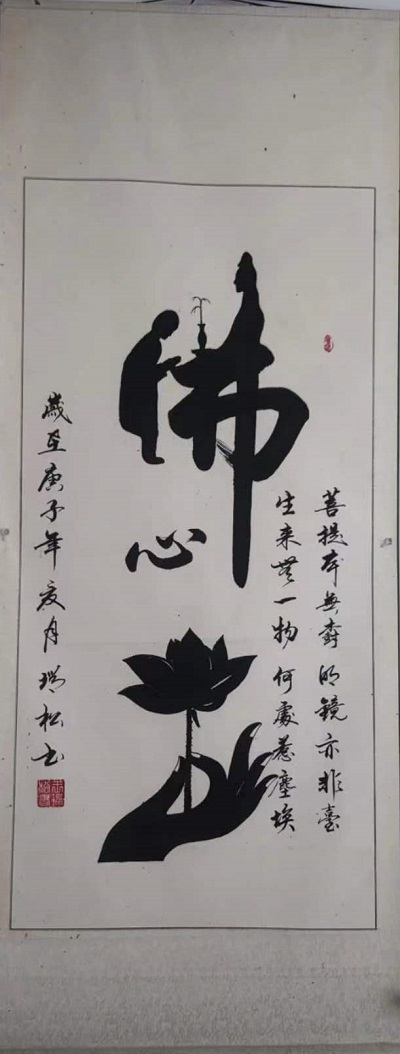 菩提本無樹明鏡亦非臺
生来無一物何處惹塵埃
佛心
歲至庚子年夏月瑞松书